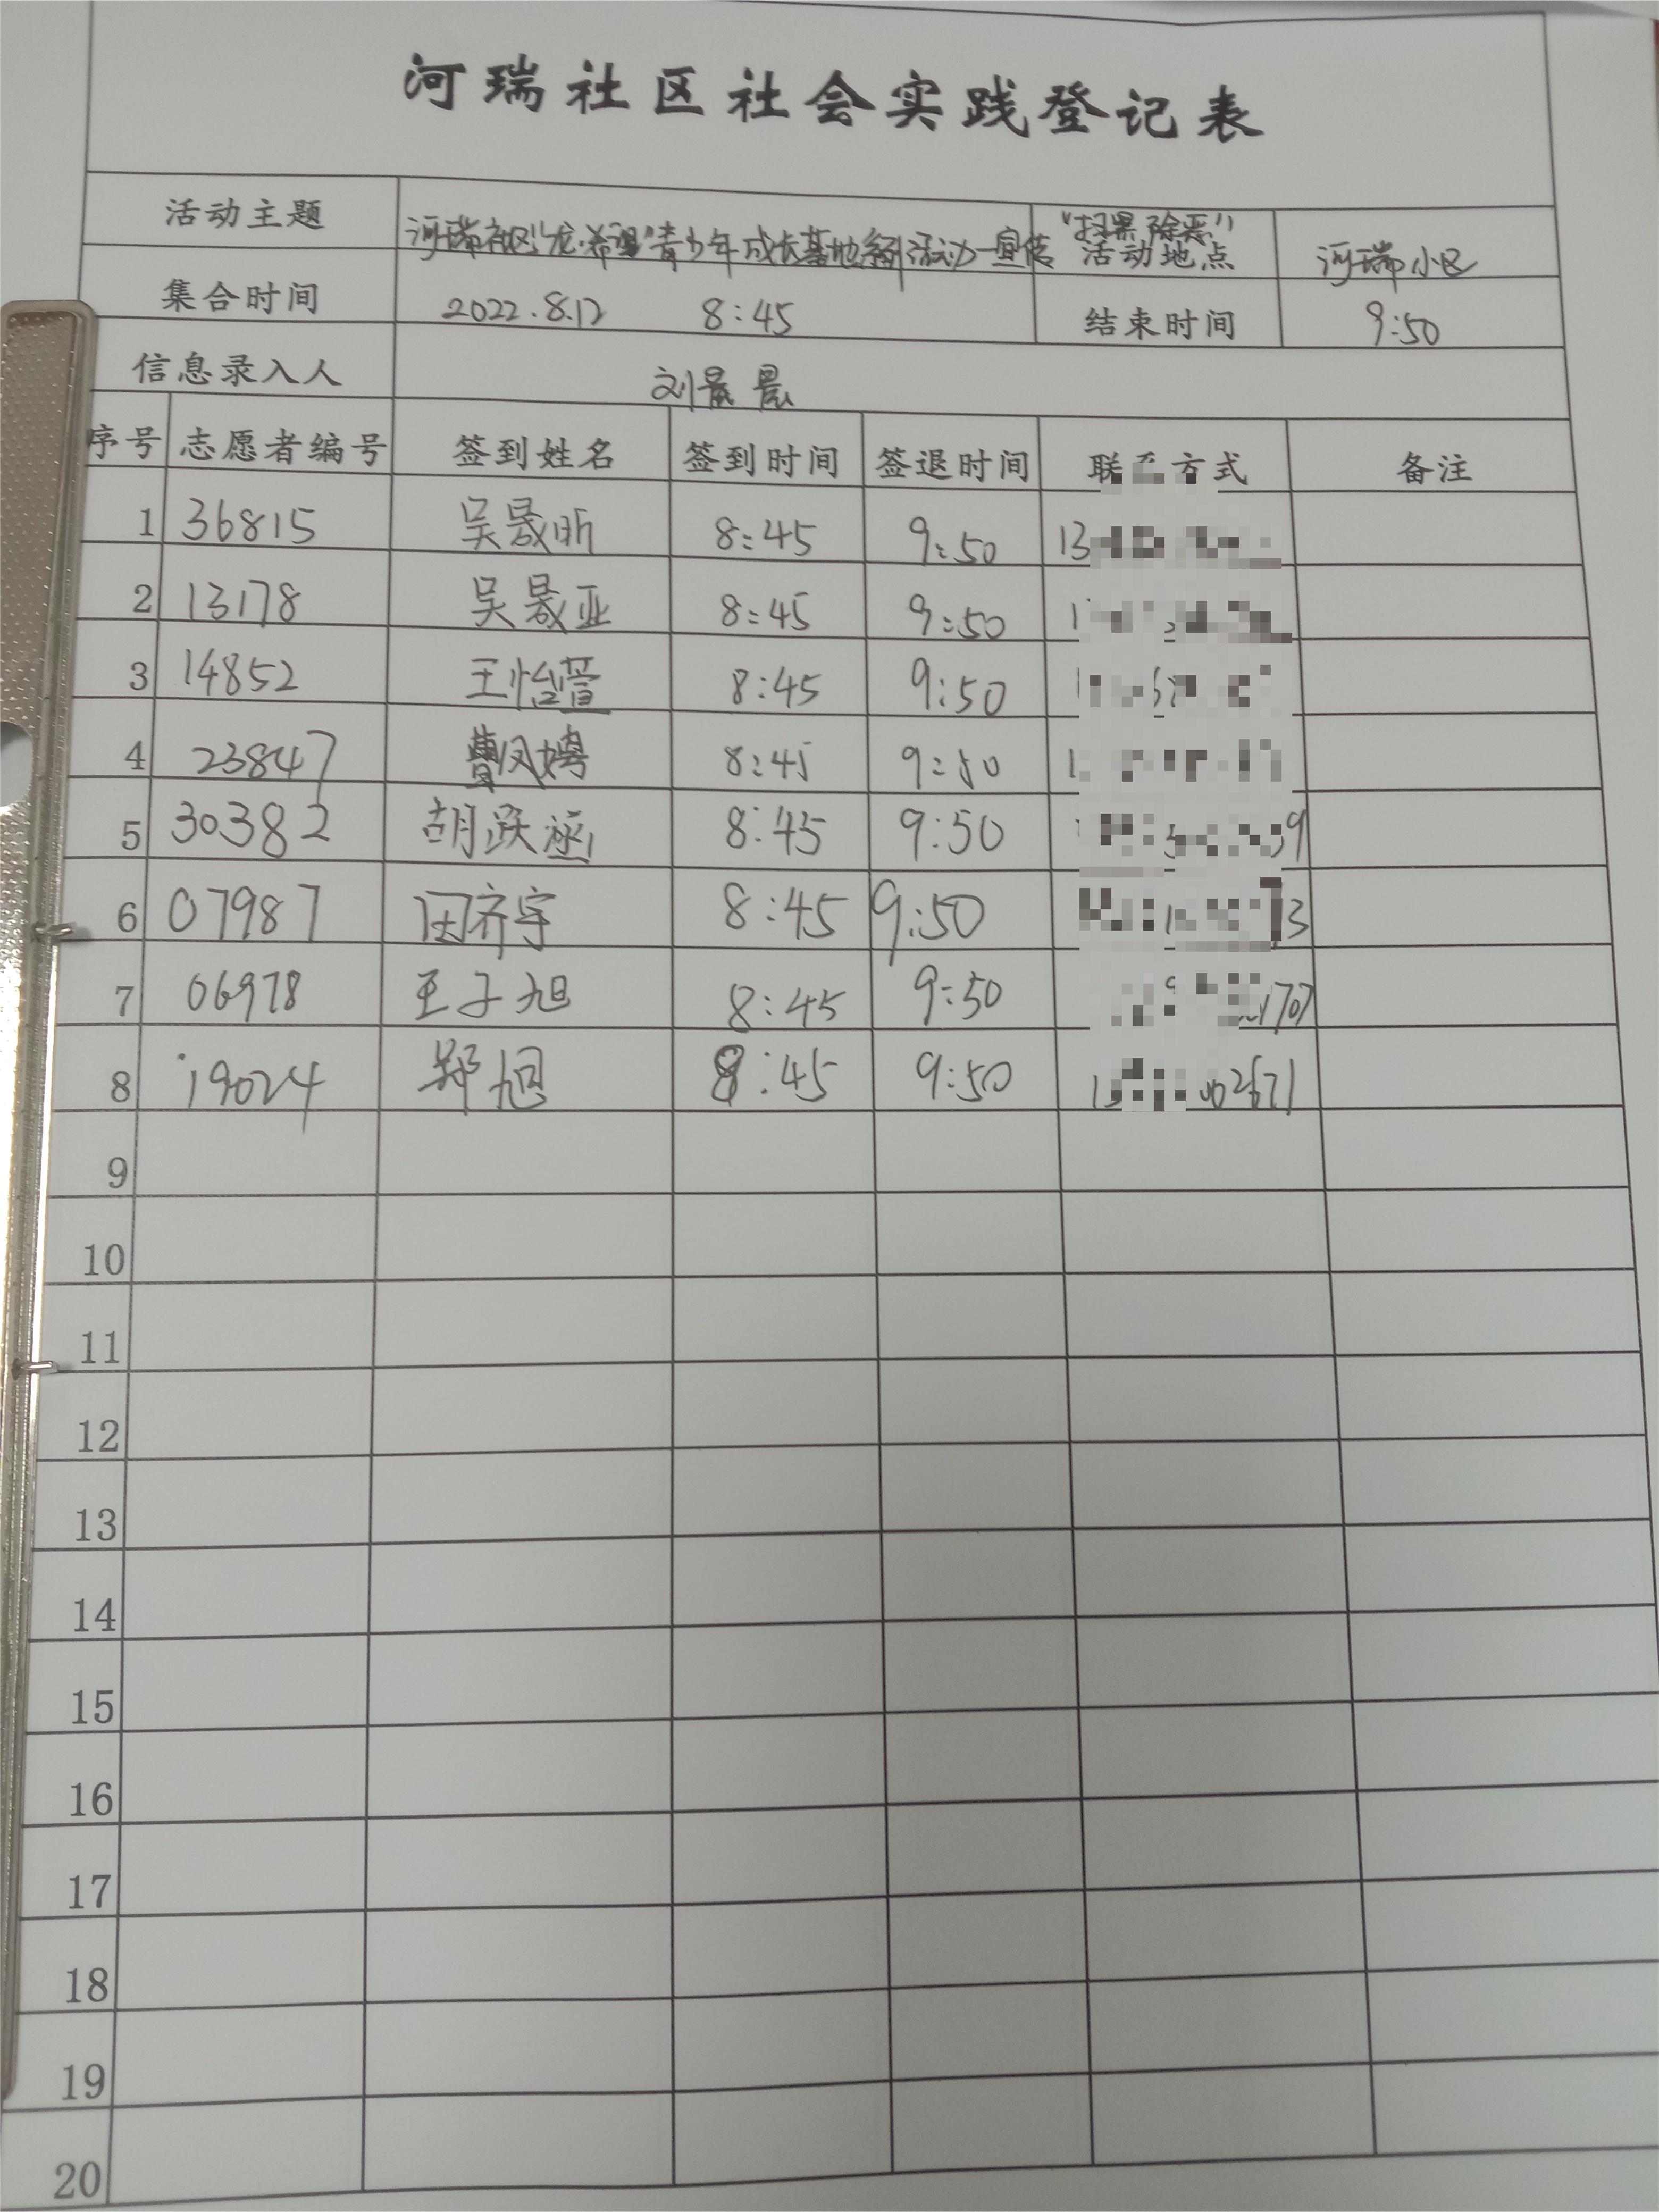 河瑞社区社会实践登记表
活动主题 河瑞社区"龙·希望"青少年成长基地系列活动—宣传"扫黑除恶" 活动地点 河瑞小区
集合时间 2022.8.12 8:45 结束时间 9:50
信息录入人 刘晨晨
序号 志愿者编号 签到姓名 签到时间 签退时间 联系方式 备注
1 36815 吴晟昕 8:45 9:50 13
2 13178 吴晟亚 8:45 9:50 1
3 14852 王怡萱 8:45 9:50 1
4 23847 曹凤娉 8:45 9:50 1
5 30382 胡跃涵 8:45 9:50 9
6 07987 田齐宇 8:45 9:50 3
7 06978 王子旭 8:45 9:50 1707
8 19024 郑旭 8:45 9:50 02671
9
10
11
12
13
14
15
16
17
18
19
20